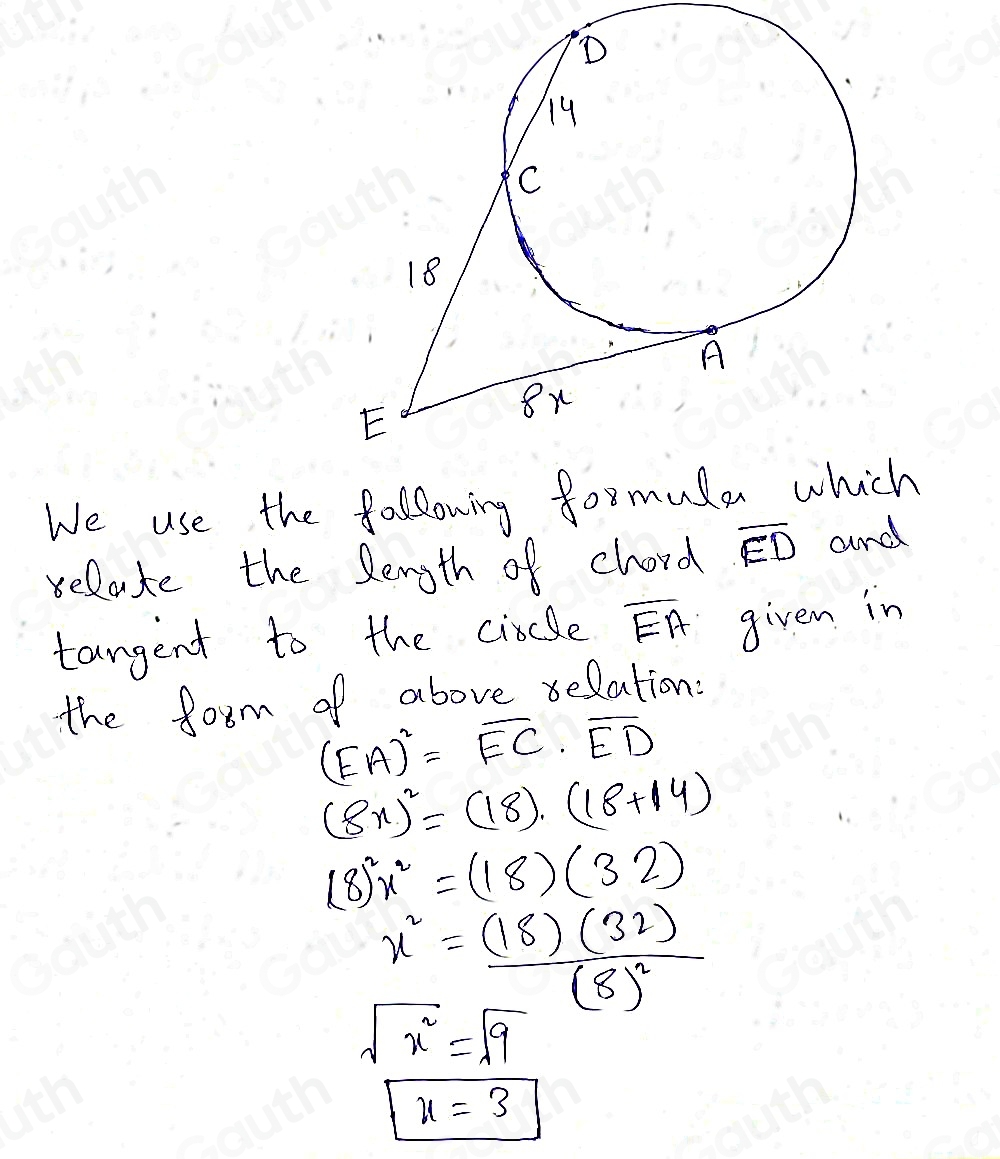 D
14
C
18
A
8x
E
We use the following formula which
relate the length of chord ED and
tangent to the circle EA given in
the form of above relation:
(EA)² = EC . ED
(8x)² = (18). (18+14)
(8)²x² = (18)(32)
x² = (18)(32)
(8)²
√x² = √9
x = 3